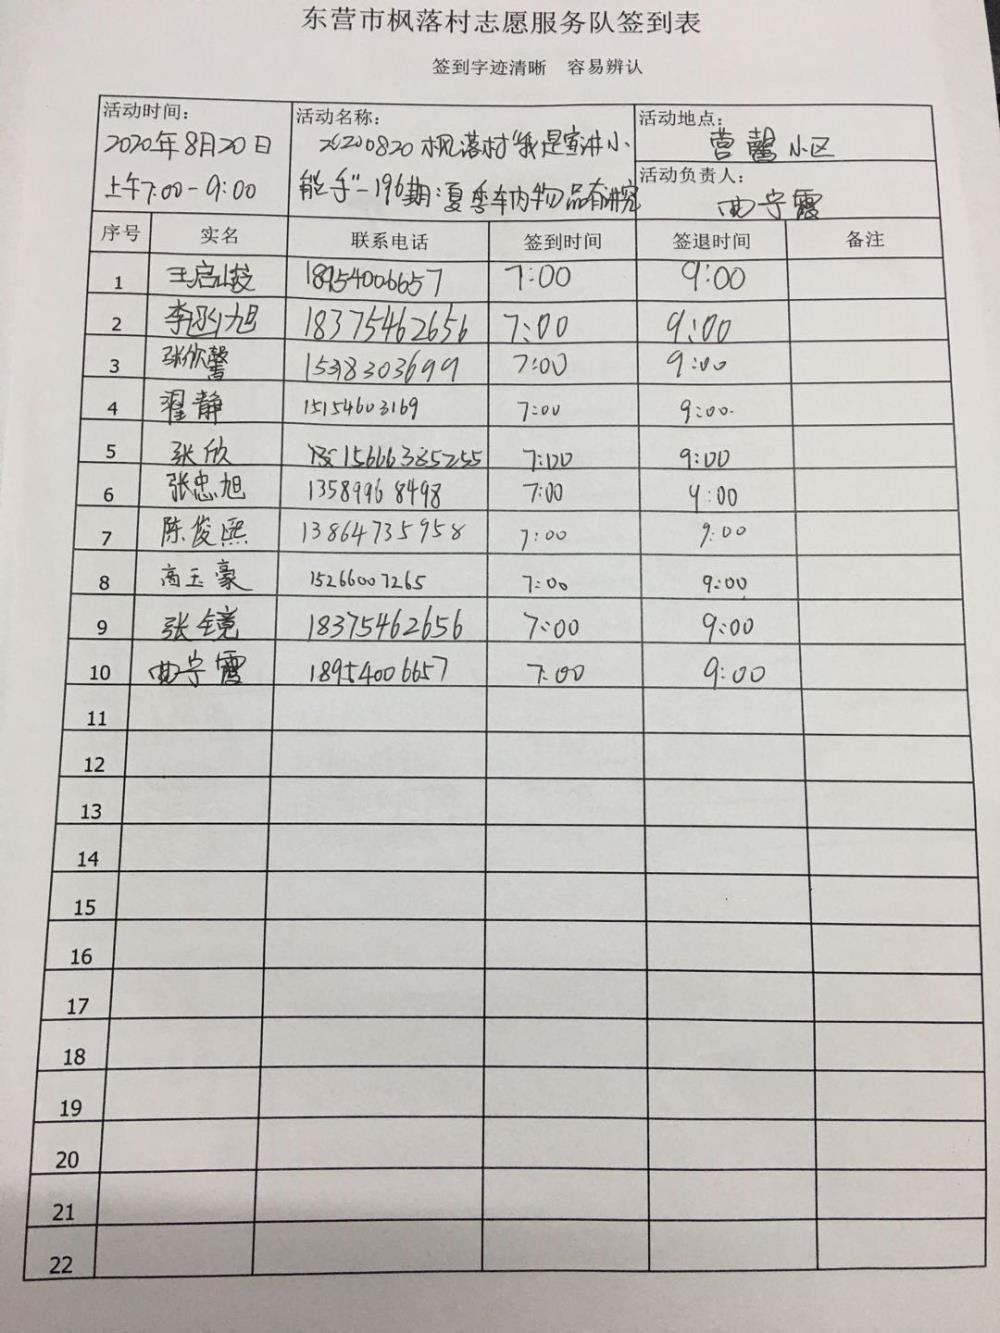 东营市枫落村志愿服务队签到表
签到字迹清晰 容易辨认
活动时间：
2020年8月20日
上午7:00-9:00
活动名称：
20200820枫落村"我是宣讲小
能手"-196期：夏季车内物品有讲究
活动地点：
营馨小区
活动负责人：
曲宁霞
序号 实名 联系电话 签到时间 签退时间 备注
1 王启 18954006657 7:00 9:00
2 李 旭 18375462656 7:00 9:00
3 张欣馨 1538303699 7:00 9:00
4 翟静 15154603169 7:00 9:00
5 张欣 15666385255 7:00 9:00
6 张忠旭 13589968498 7:00 9:00
7 陈俊熙 13864735958 7:00 9:00
8 高玉豪 15266007265 7:00 9:00
9 张全竟 18375462656 7:00 9:00
10 曲宁霞 18954006657 7:00 9:00
11
12
13
14
15
16
17
18
19
20
21
22